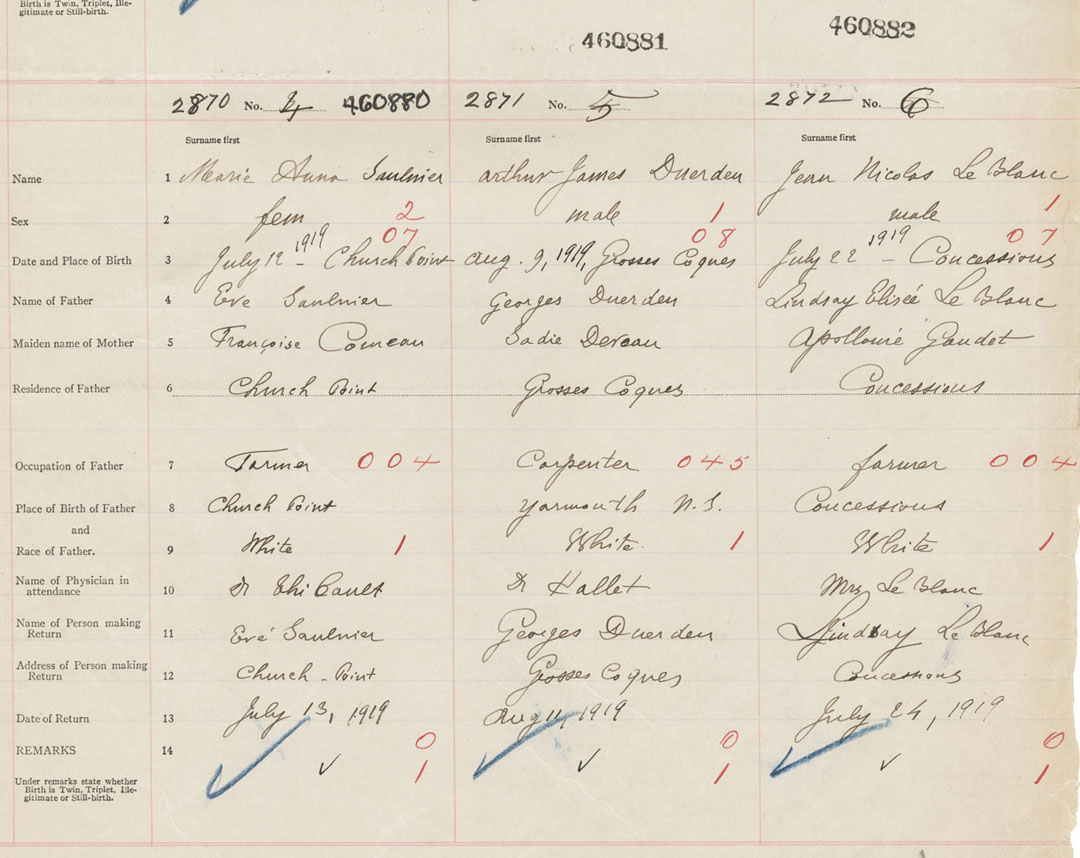 Birth is Twin, Triplet, Ille-
gitimate or Still-birth.
460881 460882
2870 No. 4 460880 2871 No. 5 2872 No. 6
Surname first Surname first Surname first
Name 1 Marie Anna Saulnier arthur James Duerden Jean Nicolas Le Blanc
Sex 2 fem 2 male 1 male 1
07 08 07
Date and Place of Birth 3 July 12 1919 - Church Point aug. 9, 1919, Grosses Coques July 22 1919 - Concessions
Name of Father 4 Eve Saulnier Georges Duerden Lindsay Eliseé Le Blanc
Maiden name of Mother 5 Françoise Comeau Sadie Deveau Apollonie Gaudet
Residence of Father 6 Church Point Grosses Coques Concessions
Occupation of Father 7 Farmer 004 Carpenter 045 farmer 004
Place of Birth of Father 8 Church Point Yarmouth N.S. Concessions
and
Race of Father. 9 White 1 White. 1 White 1
Name of Physician in
attendance 10 Dr Thibault Dr Hallet Mrs Le Blanc
Name of Person making
Return 11 Evé Saulnier Georges Duerden Lindsay Le Blanc
Address of Person making
Return 12 Church - Point Grosses Coques Concessions
Date of Return 13 July 13, 1919 Aug 11, 1919 July 24, 1919
REMARKS 14 0 0 0
✓ 1 ✓ 1 ✓ 1
Under remarks state whether
Birth is Twin, Triplet, Ille-
gitimate or Still-birth.